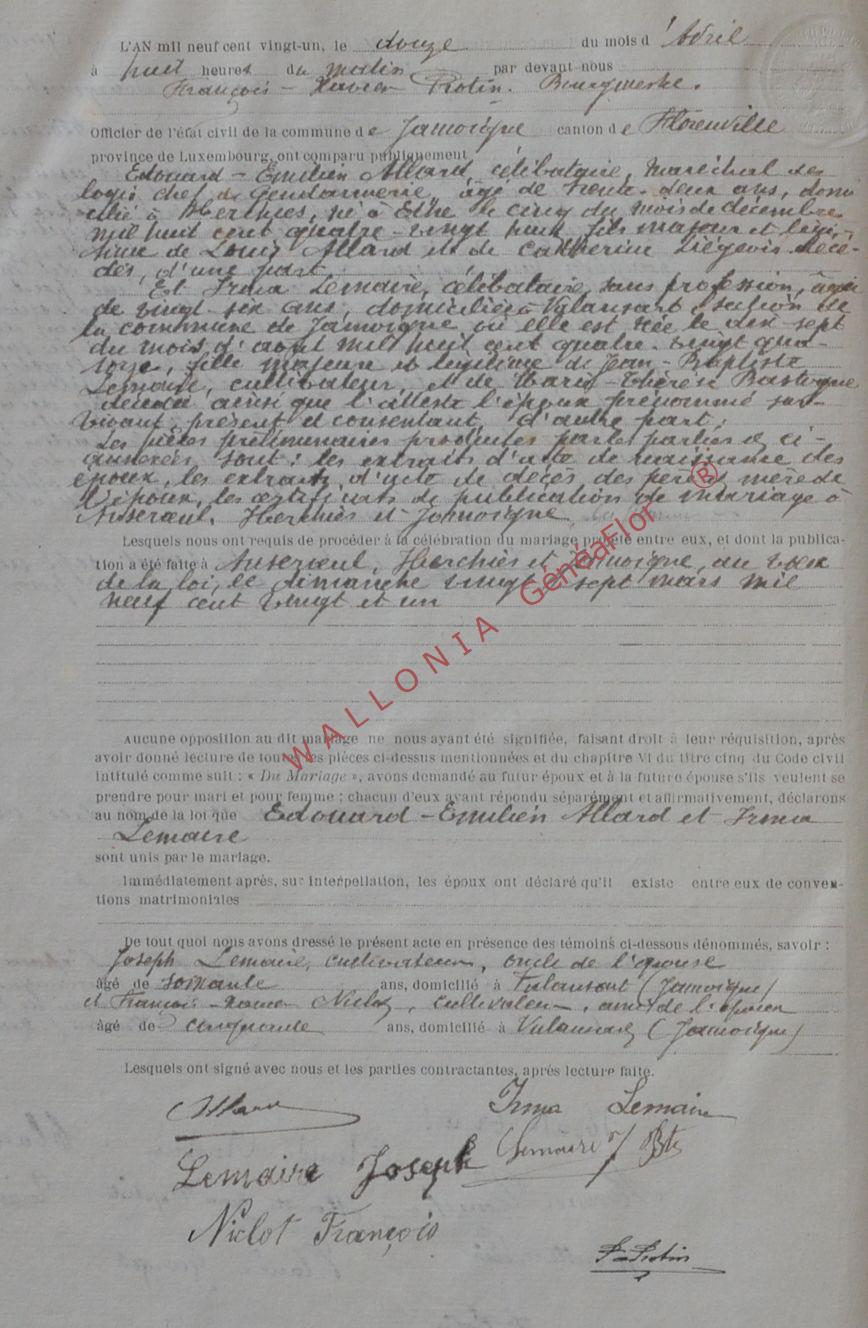 L'AN mil neuf cent vingt-un, le douze du mois d'Avril
à huit heures du matin par devant nous
François-Xavier Protin. Bourgmestre.
Officier de l'état civil de la commune de Jamoigne canton de Florenville
province de Luxembourg, ont comparu publiquement
Edouard-Emilien Allard, célibataire, maréchal des
logis chef de Gendarmerie, âgé de trente-deux ans, domi
cilié à Herchies, né à Ethe le cinq du mois de décembre
mil huit cent quatre-vingt huit fils majeur et légi-
time de Louis Allard et de Catherine Liégeois décé-
dés, d'une part.
Et Irma Lemaire, célibataire, sans profession, âgée
de vingt-six ans, domiciliée à Valansart, section de
la commune de Jamoigne où elle est née le dix-sept
du mois d'août mil huit cent quatre-vingt qua-
torze, fille majeure et légitime de Jean-Baptiste
Lemaire, cultivateur, et de Marie-Thérèse Bastogne
décédée ainsi que l'atteste l'époux prénommé sur-
vivant, présent et consentant, d'autre part;
Les pièces préliminaires produites par les parties & ci-
annexées, sont: les extraits d'acte de naissance des
époux, les extraits d'acte de décès des père & mère de
l'époux, les certificats de publication de mariage à
Anserœul, Herchies et Jamoigne
Lesquels nous ont requis de procéder à la célébration du mariage projeté entre eux, et dont la publica-
tion a été faite à Anserœul, Herchies et Jamoigne, au vœu
de la loi, le dimanche vingt-sept mars mil
neuf cent vingt et un
WALLONIA GénéaFlor ®
Aucune opposition au dit mariage ne nous ayant été signifiée, faisant droit à leur réquisition, après
avoir donné lecture de toutes les pièces ci-dessus mentionnées et du chapitre VI du titre cinq du Code civil
intitulé comme suit : « Du Mariage », avons demandé au futur époux et à la future épouse s'ils veulent se
prendre pour mari et pour femme ; chacun d'eux ayant répondu séparément et affirmativement, déclarons
au nom de la loi que Edouard-Emilien Allard et Irma
Lemaire
sont unis par le mariage.
Immédiatement après, sur interpellation, les époux ont déclaré qu'il existe entre eux de conven-
tions matrimoniales
De tout quoi nous avons dressé le présent acte en présence des témoins ci-dessous dénommés, savoir :
Joseph Lemaire, cultivateur, oncle de l'épouse
âgé de soixante ans, domicilié à Valansart (Jamoigne)
et François-Xavier Niclot, cultivateur, ami de l'époux
âgé de cinquante ans, domicilié à Valansart (Jamoigne)
Lesquels ont signé avec nous et les parties contractantes, après lecture faite.
Allard Irma Lemaire
Lemaire Joseph Lemaire J Bte
Niclot François
Protin